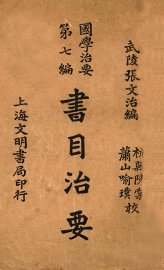 武陵張文治編
杭縣陳棠
蕭山喻璞校
國學治要
第七編
書目治要
上海文明書局印行